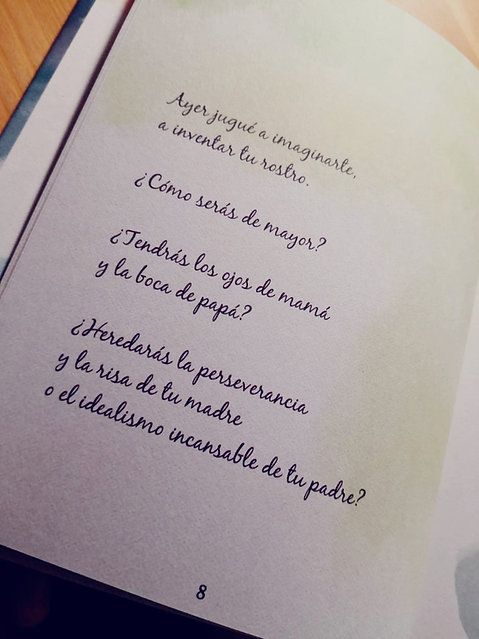 Ayer jugué a imaginarte,
a inventar tu rostro.
¿Cómo serás de mayor?
¿Tendrás los ojos de mamá
y la boca de papá?
¿Heredarás la perseverancia
y la risa de tu madre
o el idealismo incansable de tu padre?
8